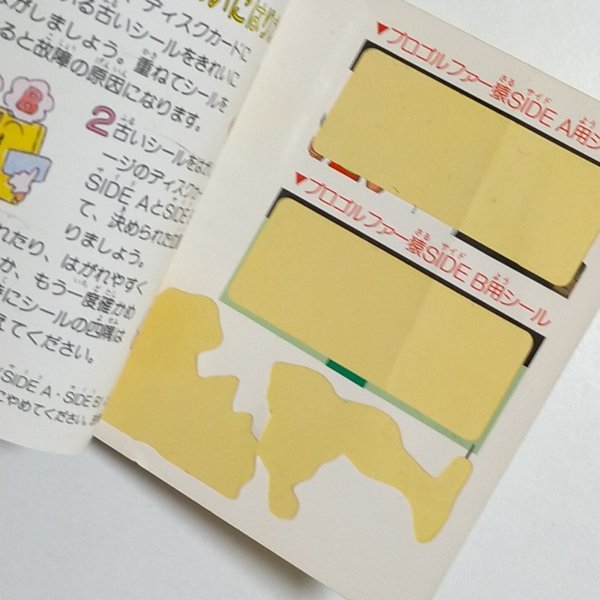 、ディスクカードに
る古いシールをきれいに
がしましょう。重ねてシールを
ると故障の原因になります。
B
2 古いシールをはが
ージのディスク
SIDE AとSIDE
て、決められた
りましょう。
れたり、はがれやすく
か、もう一度確かめ
にシールの四隅は
えてください。
SIDE A・SIDE B
にやめてください。
▼プロゴルファー猿SIDE A用シ
▼プロゴルファー猿SIDE B用シール